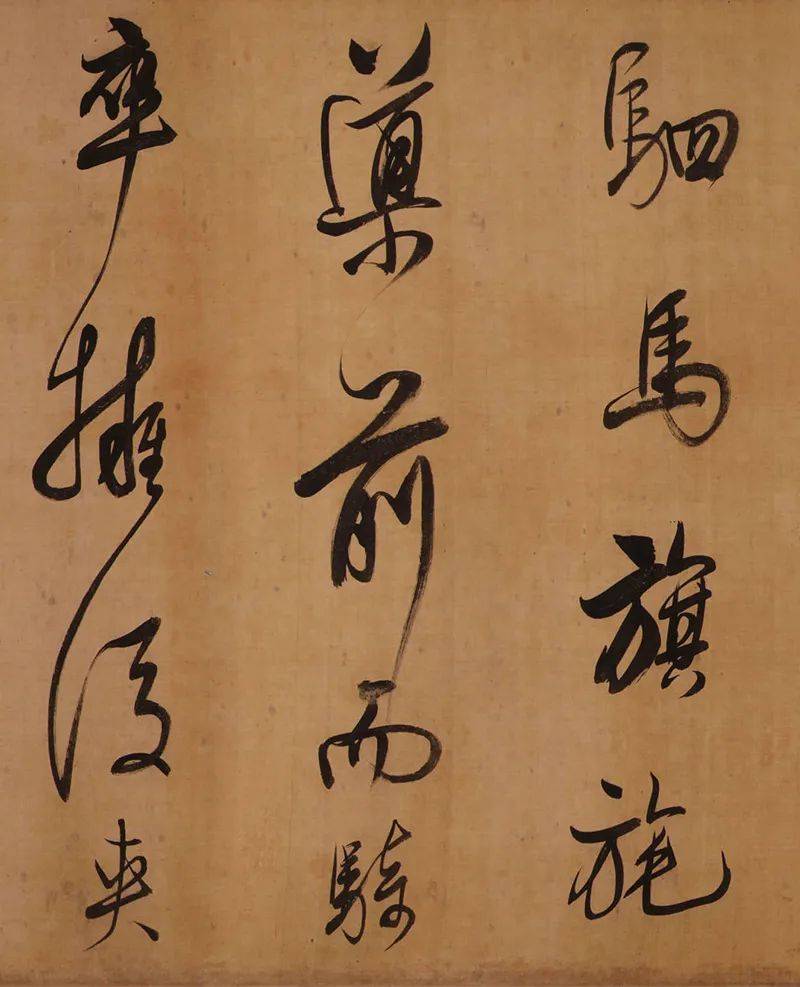 駟馬旗旄
導前而騎
卒擁後夾